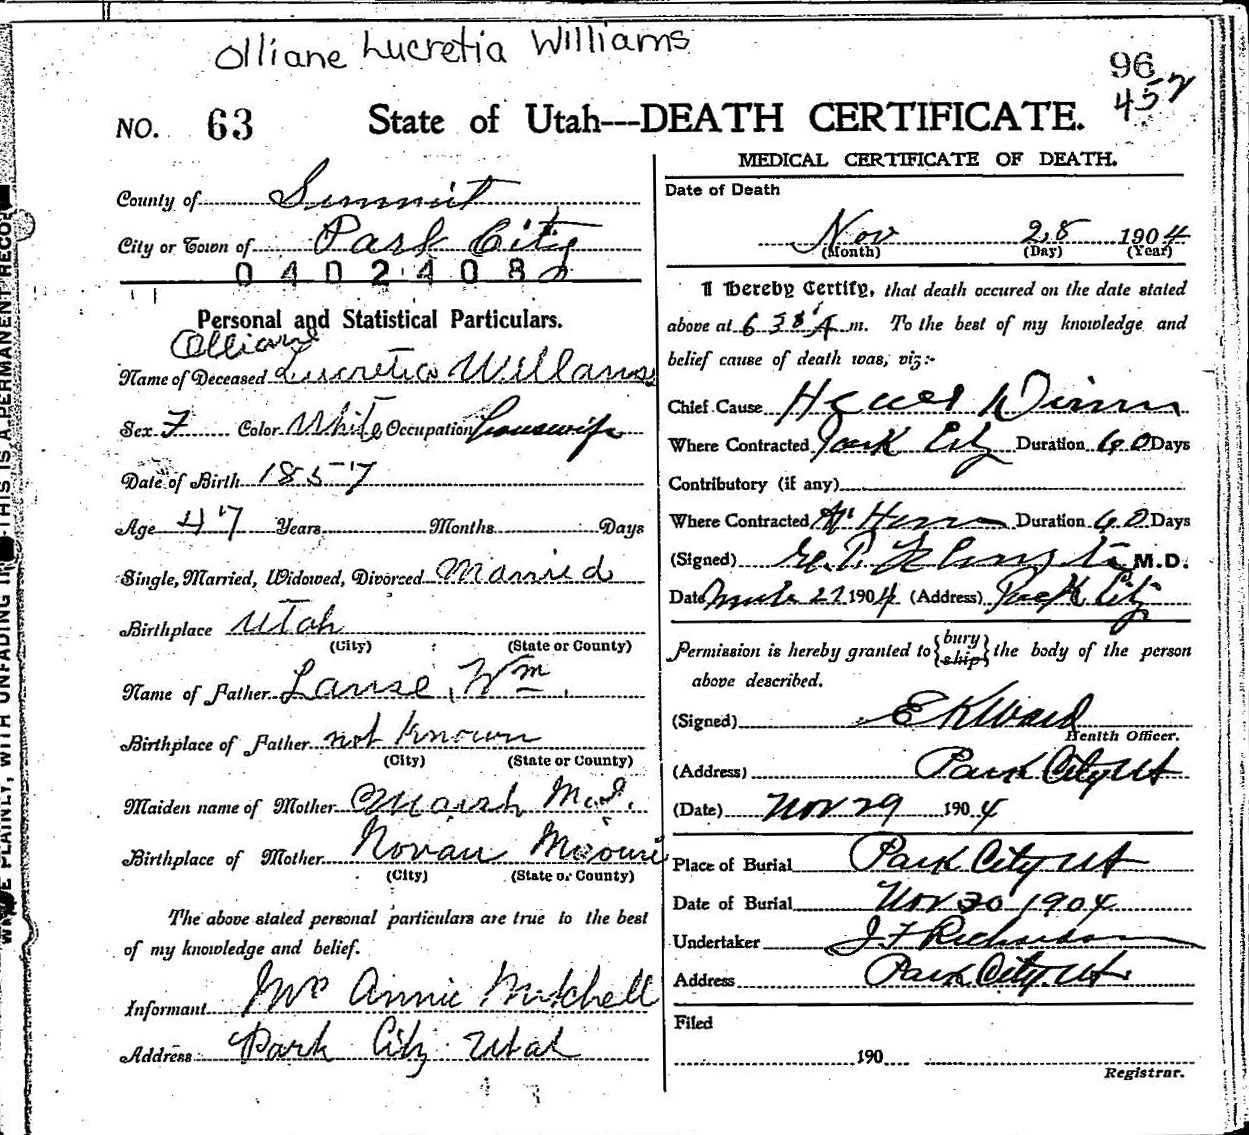 Olliane Lucretia Williams
96
457
NO. 63 State of Utah---DEATH CERTIFICATE.
County of Summit
City or Town of Park City
0402408
Personal and Statistical Particulars.
Olliane
Name of Deceased Lucretia Williams
Sex F Color White Occupation Housewife
Date of Birth 1857
Age 47 Years Months Days
Single, Married, Widowed, Divorced Married
Birthplace Utah
(City) (State or County)
Name of Father Wm.
Birthplace of Father not known
(City) (State or County)
Maiden name of Mother
Birthplace of Mother
(City) (State or County)
The above stated personal particulars are true to the best
of my knowledge and belief.
Informant Mrs Annie Mitchell
Address Park City Utah
MEDICAL CERTIFICATE OF DEATH.
Date of Death
Nov 28 1904
(Month) (Day) (Year)
I Hereby Certify, that death occured on the date stated
above at 6 38 A m. To the best of my knowledge and
belief cause of death was, viz:-
Chief Cause
Where Contracted Park City Duration 60 Days
Contributory (if any)
Where Contracted Duration 60 Days
(Signed) M.D.
Date 1904 (Address) Park City
Permission is hereby granted to {bury ship} the body of the person
above described.
(Signed) E K Ward
Health Officer.
(Address) Park City Ut
(Date) Nov 29 1904
Place of Burial Park City Ut
Date of Burial Nov 30 1904
Undertaker J F Richardson
Address Park City Ut
Filed
190
Registrar.
THIS IS A PERMANENT RECO
PLAINLY, WITH UNFADING